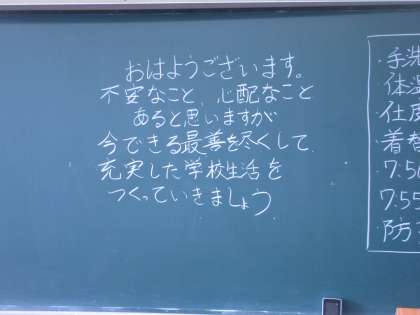 おはようございます。
不安なこと、心配なこと
あると思いますが
今できる最善を尽くして
充実した学校生活を
つくっていきましょう
・手洗
体温
・着替
・7.5
7.55
・防